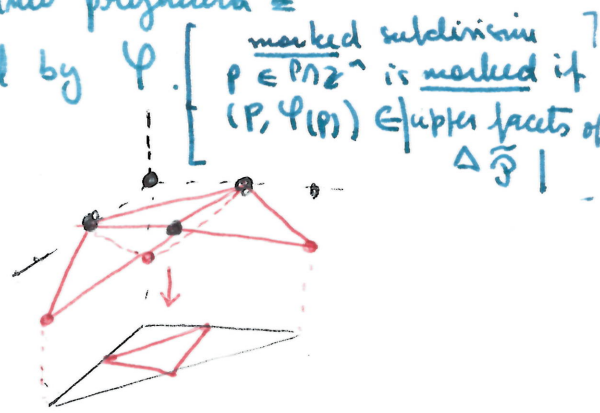 by φ.
marked subdivision
p ∈ P∩Zⁿ is marked if
(p, φ(p)) ∈ | upper facets of
Δ P̃ |